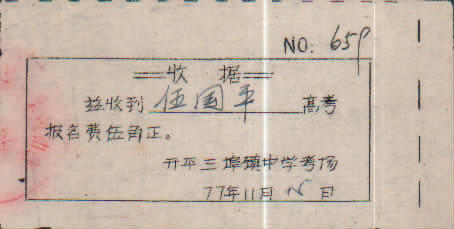 NO: 659
收 据
兹收到 伍国平 高考
报名费伍角正。
开平三埠镇中学考场
77年11月15日